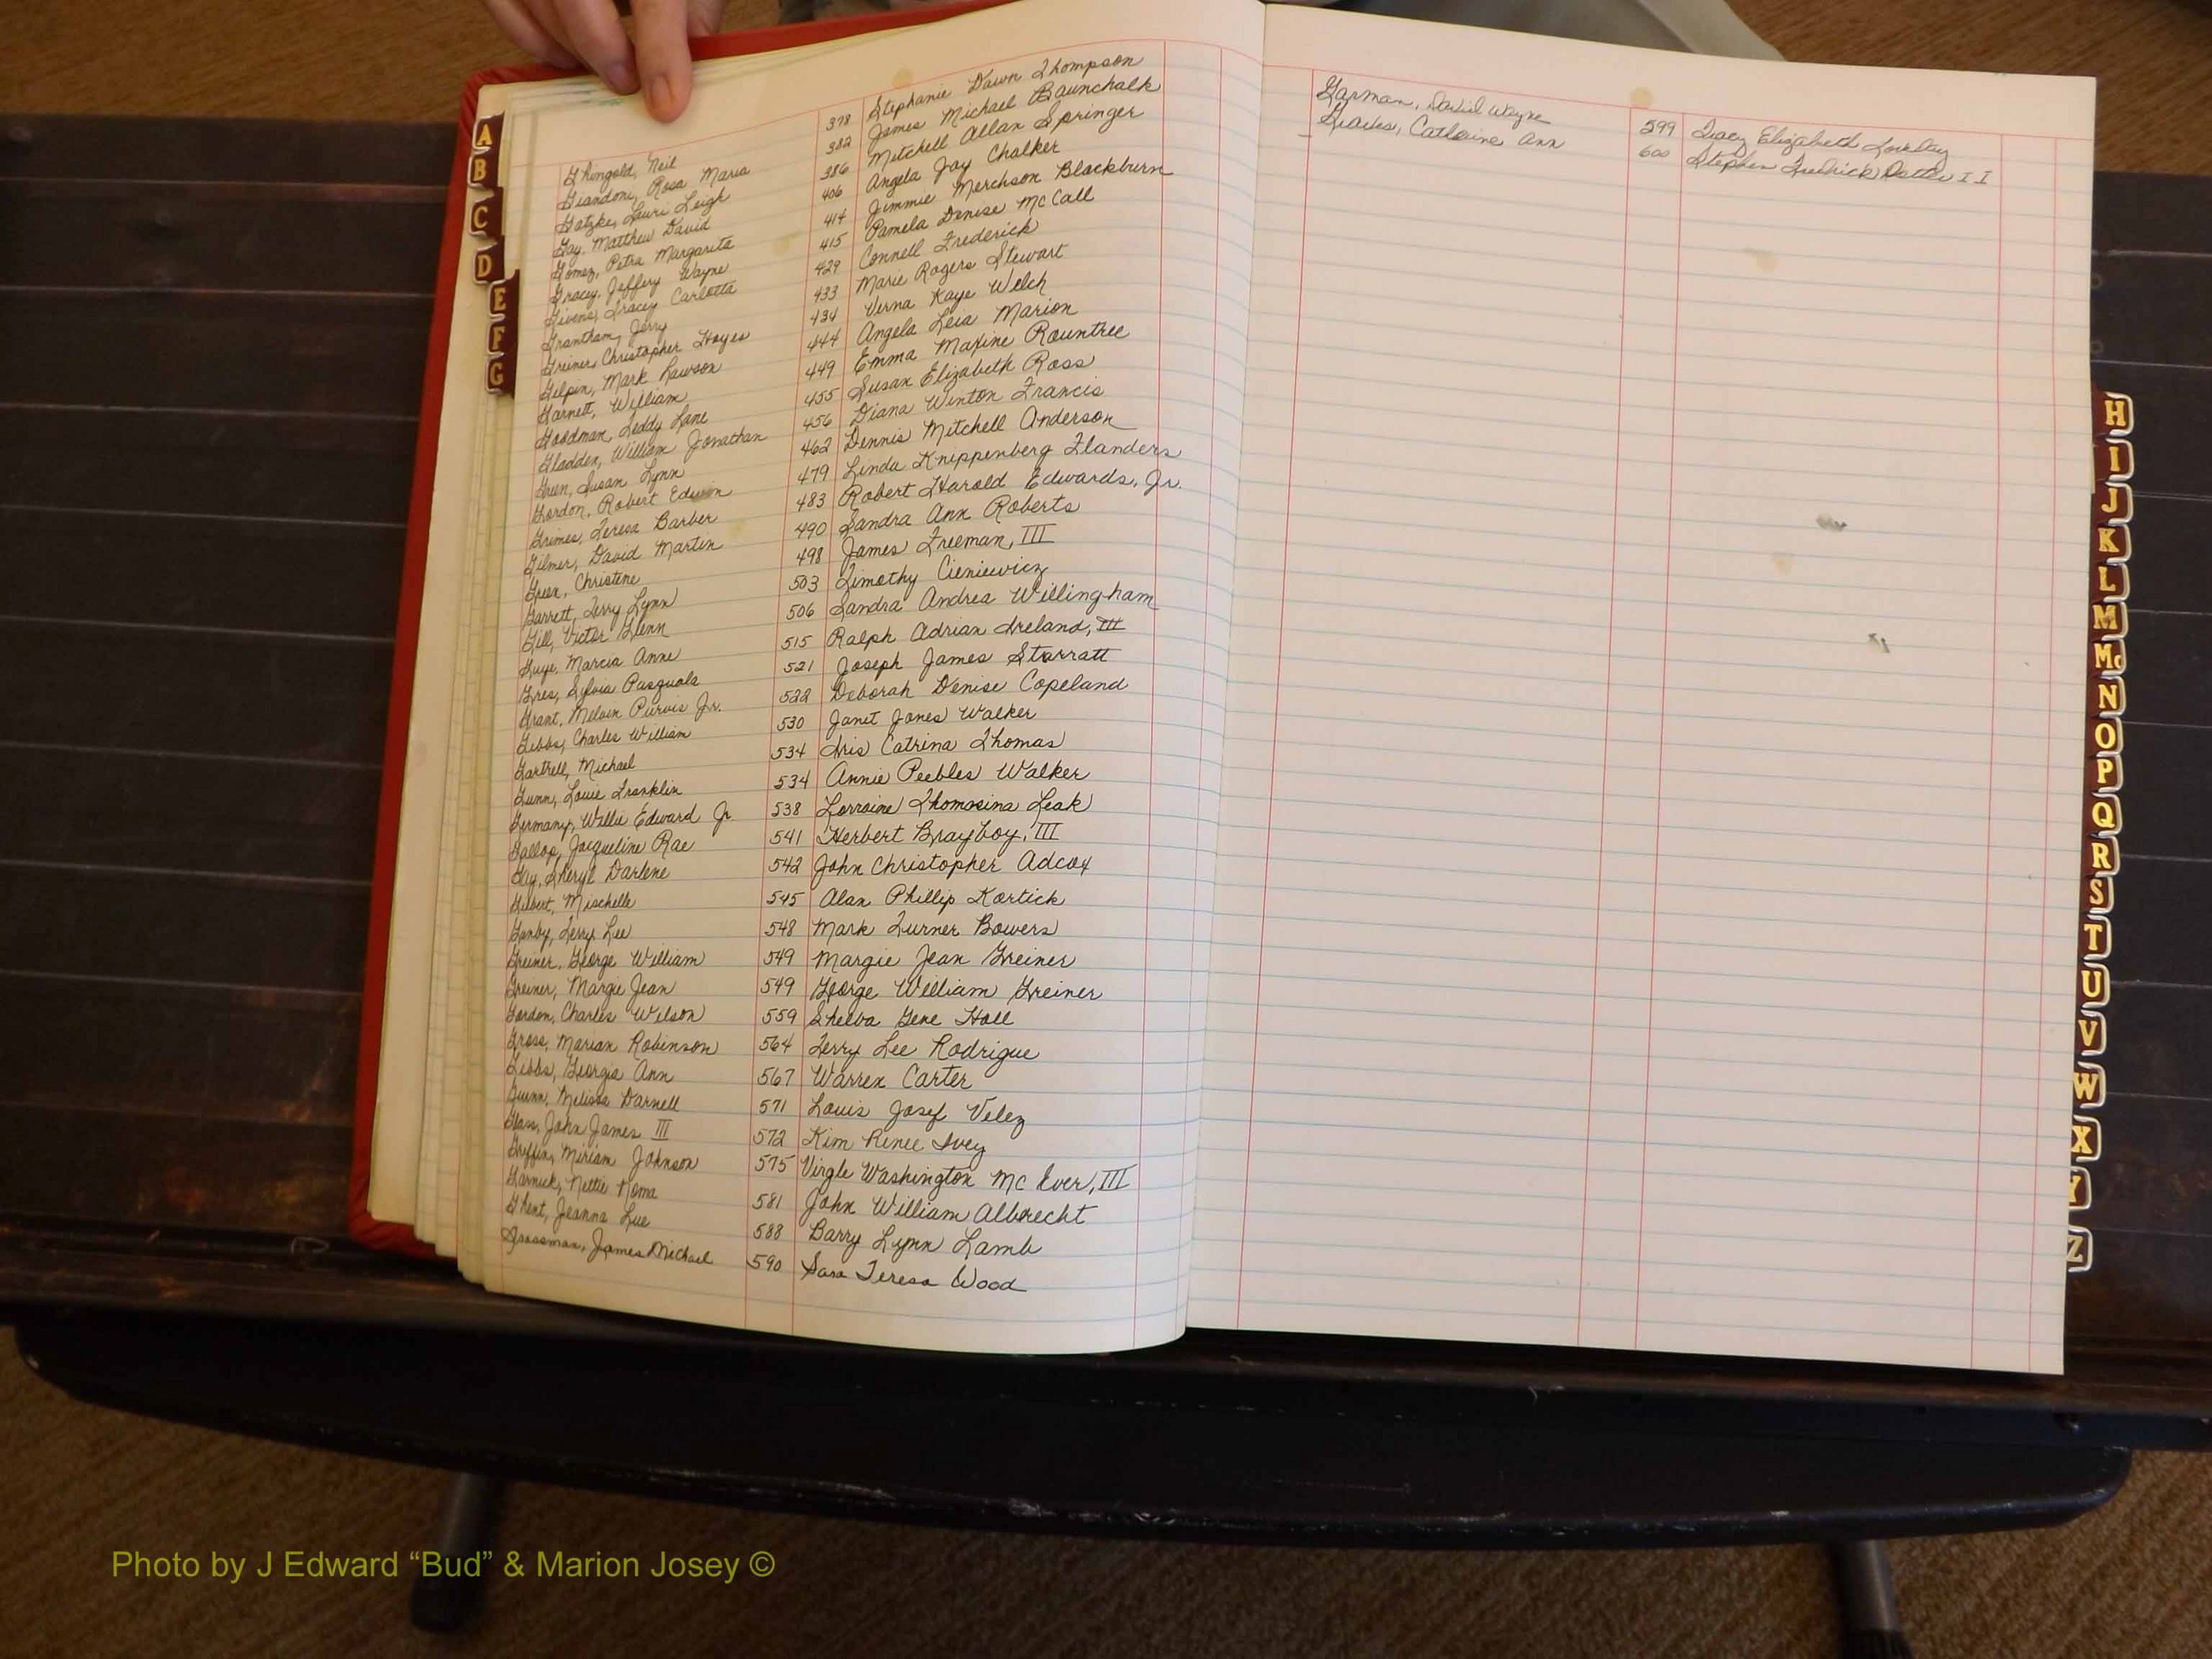 A
B
C
D
E
F
G
Ghingold, Neil 378 Stephanie Dawn Thompson
Giandoni, Rosa Maria 382 James Michael Baunchalk
Gatzke, Lauri Leigh 386 Mitchell Allan Springer
Gay, Matthew David 406 Angela Jay Chalker
Gomez, Petra Margarita 414 Jimmie Merchson Blackburn
Gracey, Jeffery Wayne 415 Pamela Denise McCall
Givens, Tracey Carlotta 429 Connell Frederick
Grantham, Jerry 433 Marie Rogers Stewart
Greiner, Christopher Hayes 434 Verna Kaye Welch
Gilpin, Mark Lawson 444 Angela Leia Marion
Garnett, William 449 Emma Maxine Rountree
Goodman, Teddy Lane 455 Susan Elizabeth Ross
Gladden, William Jonathan 456 Diana Winton Francis
Green, Susan Lynn 462 Dennis Mitchell Anderson
Gordon, Robert Edwin 479 Linda Knippenberg Flanders
Grimes, Teresa Barber 483 Robert Harold Edwards, Jr.
Gilmer, David Martin 490 Sandra Ann Roberts
Green, Christine 498 James Freeman, III
Garrett, Terry Lynn 503 Timothy Cieniewicz
Gill, Victor Glenn 506 Sandra Andrea Willingham
Guye, Marcia Anne 515 Ralph Adrian Ireland, III
Gres, Sylvia Pasquala 521 Joseph James Starratt
Grant, Melvin Purvis Jr. 522 Deborah Denise Copeland
Gibbs, Charles William 530 Janet Jones Walker
Gartrell, Michael 534 Iris Catrina Thomas
Gunn, Louie Franklin 534 Annie Peebles Walker
Germany, Willie Edward Jr. 538 Lorraine Thomasina Leak
Gallop, Jacqueline Rae 541 Herbert Brayboy, III
Gay, Sheryl Darlene 542 John Christopher Adcox
Gilbert, Mischelle 545 Alan Phillip Kortick
Ganby, Terry Lee 548 Mark Turner Bowers
Greiner, George William 549 Margie Jean Greiner
Greiner, Margie Jean 549 George William Greiner
Gordon, Charles Wilson 559 Shelba Gene Hall
Gross, Marian Robinson 564 Terry Lee Rodrigue
Gibbs, Georgia Ann 567 Warren Carter
Guinn, Melissa Darnell 571 Louis Josef Velez
Glass, John James III 572 Kim Renee Ivey
Griffin, Miriam Johnson 575 Virgle Washington McEver, III
Garnick, Nettie Noma 581 John William Albrecht
Ghent, Jeanna Lue 588 Barry Lynn Lamb
Grossman, James Michael 590 Sara Teresa Wood
Garman, David Wayne 599 Tracy Elizabeth
Catherine Ann 600 Stephen II
H
I
J
K
L
M
Mc
N
O
P
Q
R
S
T
U
V
W
X
Y
Z
Photo by J Edward “Bud” & Marion Josey ©